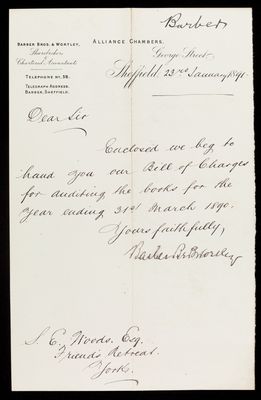 Barber
BARBER BROS. & WORTLEY,
Sharebrokers
&
Chartered Accountants
TELEPHONE No. 38.
TELEGRAPH ADDRESS,
BARBER, SHEFFIELD.
ALLIANCE CHAMBERS,
George Street,
Sheffield, 23rd January 1891
Dear Sir
Enclosed we beg to
hand you our Bill of Charges
for auditing the books for the
Year ending 31st March 1890.
Yours faithfully,
Barber Bros & Wortley
S. E. Woods. Esq.
Friends Retreat.
York.